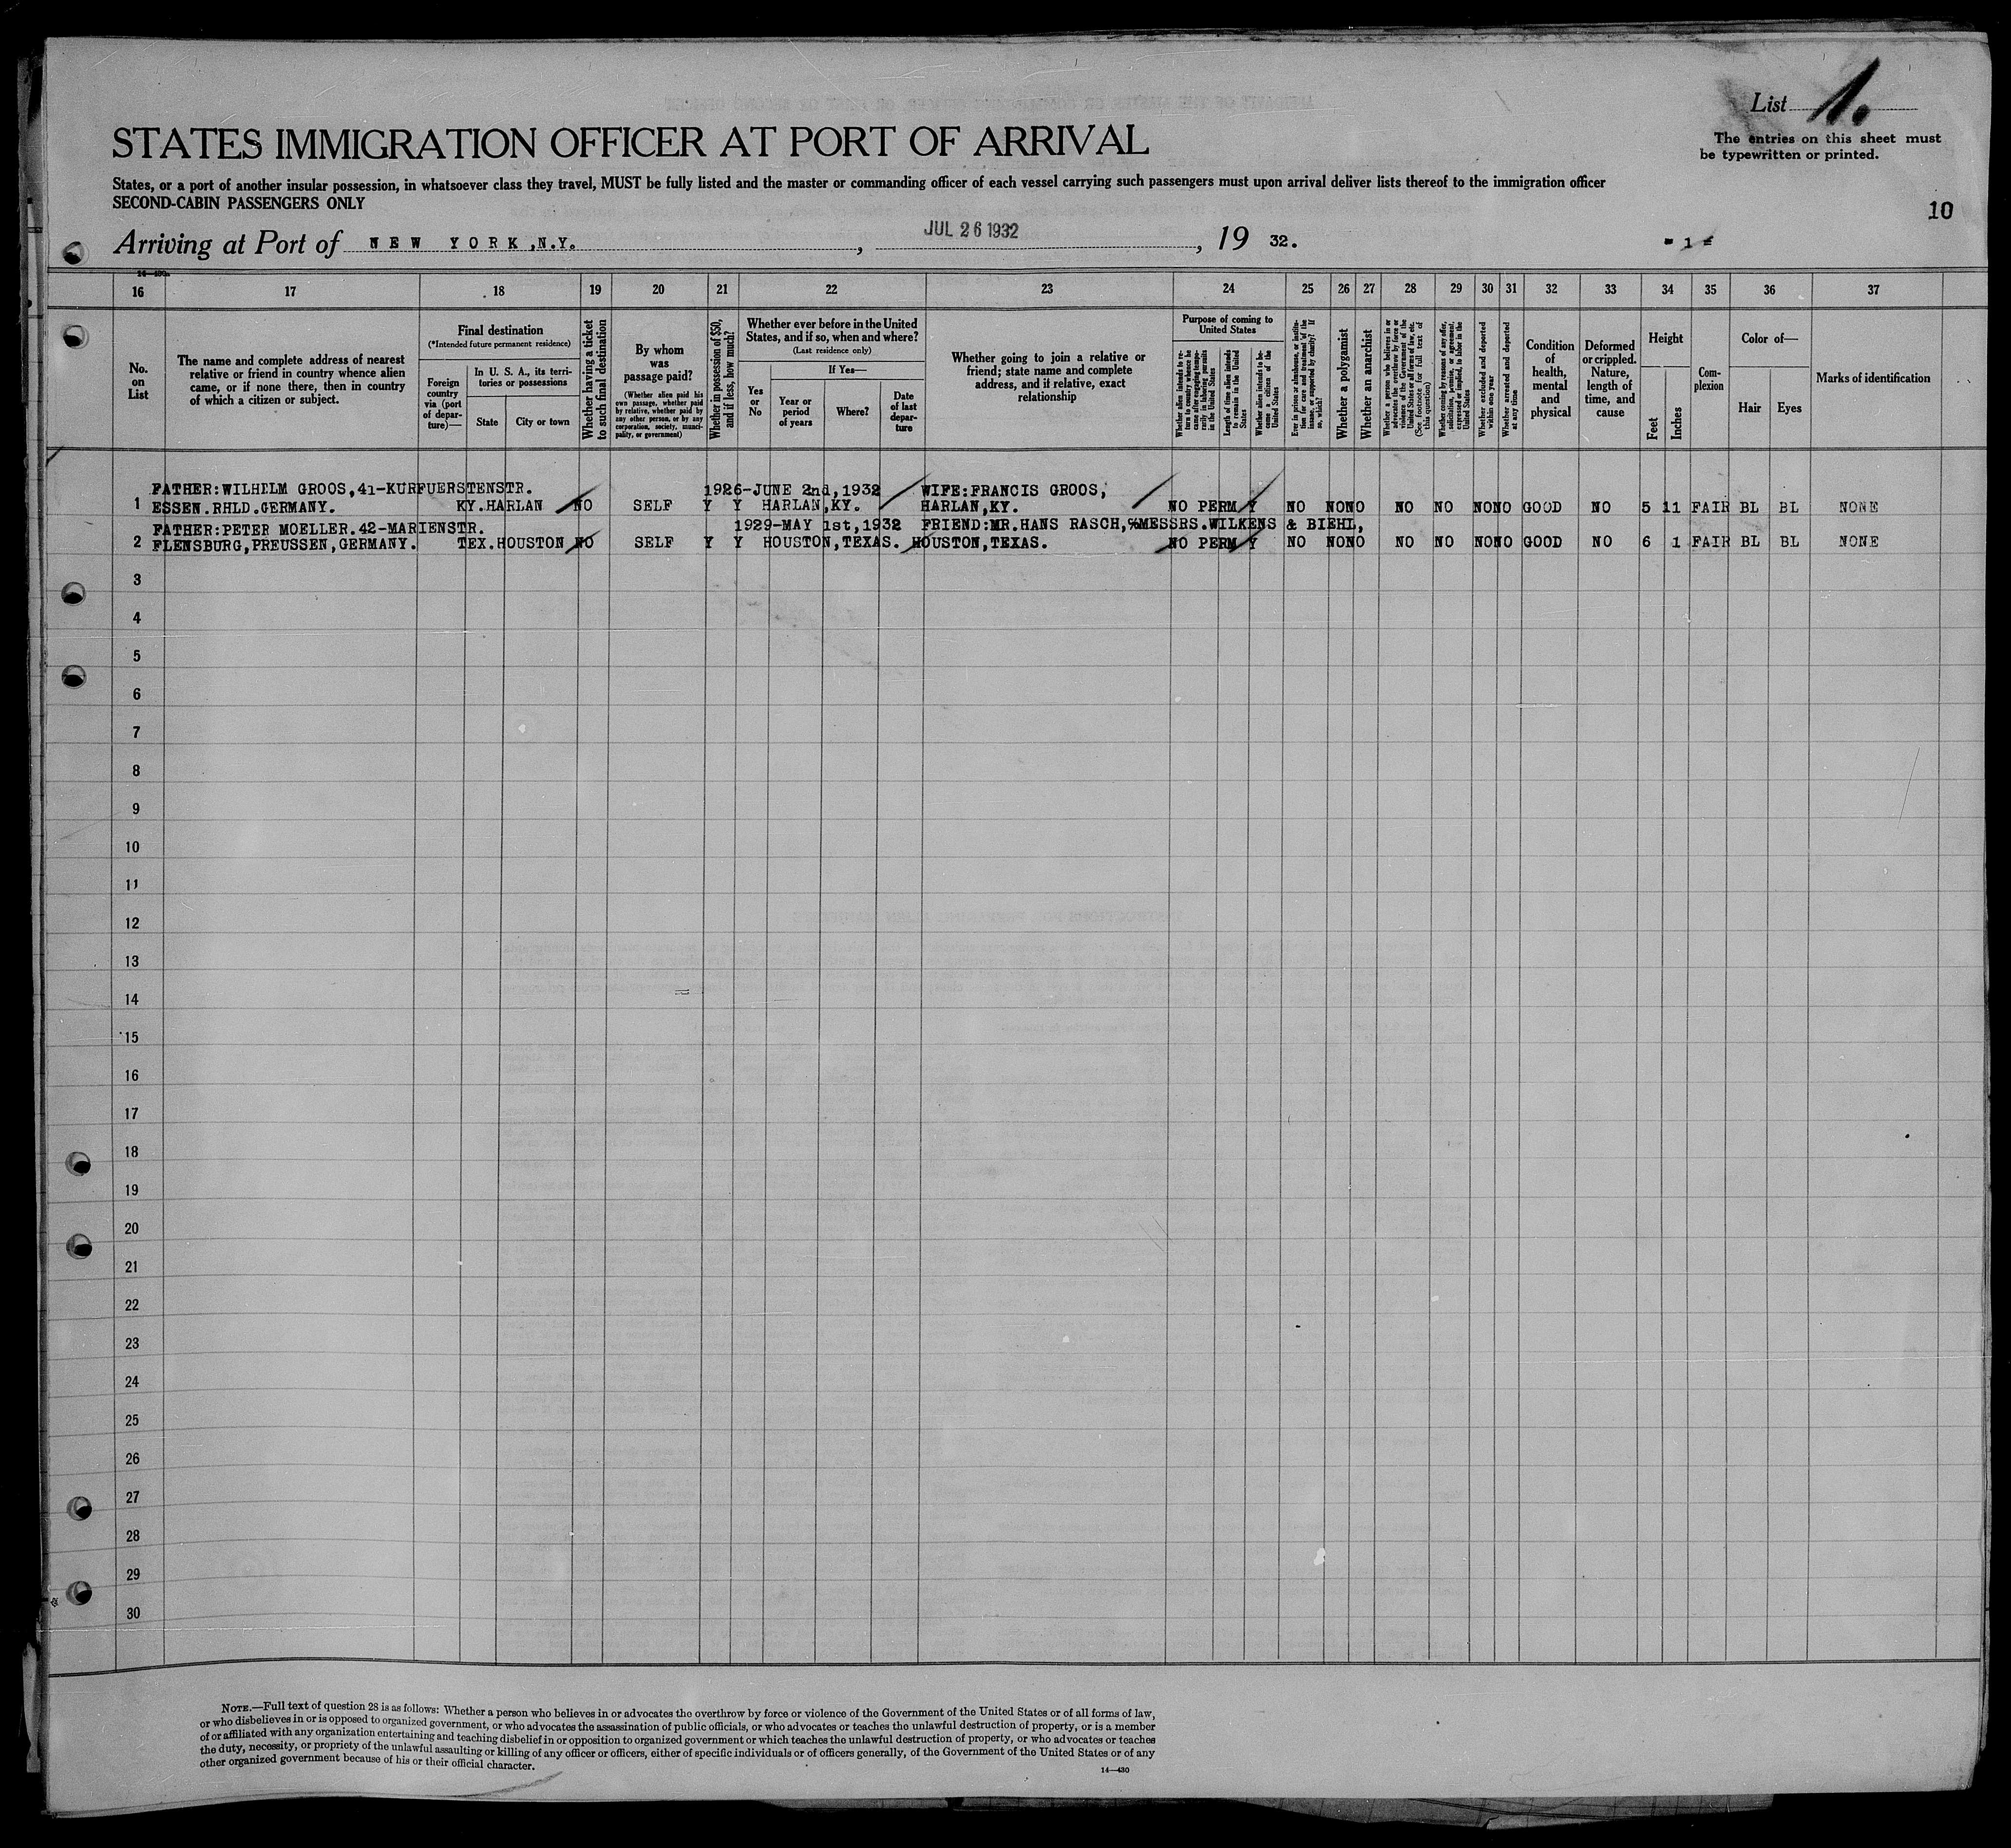 List 10
The entries on this sheet must
be typewritten or printed.
STATES IMMIGRATION OFFICER AT PORT OF ARRIVAL
States, or a port of another insular possession, in whatsoever class they travel, MUST be fully listed and the master or commanding officer of each vessel carrying such passengers must upon arrival deliver lists thereof to the immigration officer
SECOND-CABIN PASSENGERS ONLY
10
Arriving at Port of NEW YORK, N.Y. , JUL 26 1932 , 19 32. - 1 -
16 17 18 19 20 21 22 23 24 25 26 27 28 29 30 31 32 33 34 35 36 37
No.
on
List
The name and complete address of nearest
relative or friend in country whence alien
came, or if none there, then in country
of which a citizen or subject.
Final destination
(*Intended future permanent residence)
Foreign
country
via (port
of depar-
ture)—
In U. S. A., its terri-
tories or possessions
State City or town
Whether having a ticket
to such final destination
By whom
was
passage paid?
(Whether alien paid his
own passage, whether paid
by relative, whether paid by
any other person, or by any
corporation, society, munici-
pality, or government)
Whether in possession of $50,
and if less, how much?
Whether ever before in the United
States, and if so, when and where?
(Last residence only)
Yes
or
No
If Yes—
Year or
period
of years
Where?
Date
of last
depar-
ture
Whether going to join a relative or
friend; state name and complete
address, and if relative, exact
relationship
Purpose of coming to
United States
Whether alien intends to re-
turn to country whence he
came after engaging tempo-
rarily in laboring pursuits
in the United States
Length of time alien intends
to remain in the United
States
Whether alien intends to be-
come a citizen of the
United States
Ever in prison or almshouse, or institu-
tion for care and treatment of the
insane, or supported by charity? If
so, which?
Whether a polygamist
Whether an anarchist
Whether a person who believes in or
advocates the overthrow by force or
violence of the Government of the
United States or all forms of law, etc.
(See footnote for full text of
this question)
Whether coming by reason of any offer,
solicitation, promise, or agreement,
expressed or implied, to labor in the
United States
Whether excluded and deported
within one year
Whether arrested and deported
at any time
Condition
of
health,
mental
and
physical
Deformed
or crippled.
Nature,
length of
time, and
cause
Height
Feet Inches
Com-
plexion
Color of—
Hair Eyes
Marks of identification
FATHER:WILHELM GROOS,41-KURFUERSTENSTR. 1926-JUNE 2nd,1932 WIFE:FRANCIS GROOS,
1 ESSEN.RHLD.GERMANY. KY.HARLAN NO SELF Y Y HARLAN,KY. HARLAN,KY. NO PERM Y NO NO NO NO NO NO NO GOOD NO 5 11 FAIR BL BL NONE
FATHER:PETER MOELLER.42-MARIENSTR. 1929-MAY 1st,1932 FRIEND:MR.HANS RASCH,%MESSRS.WILKENS & BIEHL,
2 FLENSBURG,PREUSSEN,GERMANY. TEX.HOUSTON NO SELF Y Y HOUSTON,TEXAS. HOUSTON,TEXAS. NO PERM Y NO NO NO NO NO NO NO GOOD NO 6 1 FAIR BL BL NONE
3
4
5
6
7
8
9
10
11
12
13
14
15
16
17
18
19
20
21
22
23
24
25
26
27
28
29
30
NOTE.—Full text of question 28 is as follows: Whether a person who believes in or advocates the overthrow by force or violence of the Government of the United States or of all forms of law,
or who disbelieves in or is opposed to organized government, or who advocates the assassination of public officials, or who advocates or teaches the unlawful destruction of property, or is a member
of or affiliated with any organization entertaining and teaching disbelief in or opposition to organized government or which teaches the unlawful destruction of property, or who advocates or teaches
the duty, necessity, or propriety of the unlawful assaulting or killing of any officer or officers, either of specific individuals or of officers generally, of the Government of the United States or of any
other organized government because of his or their official character.
14—430